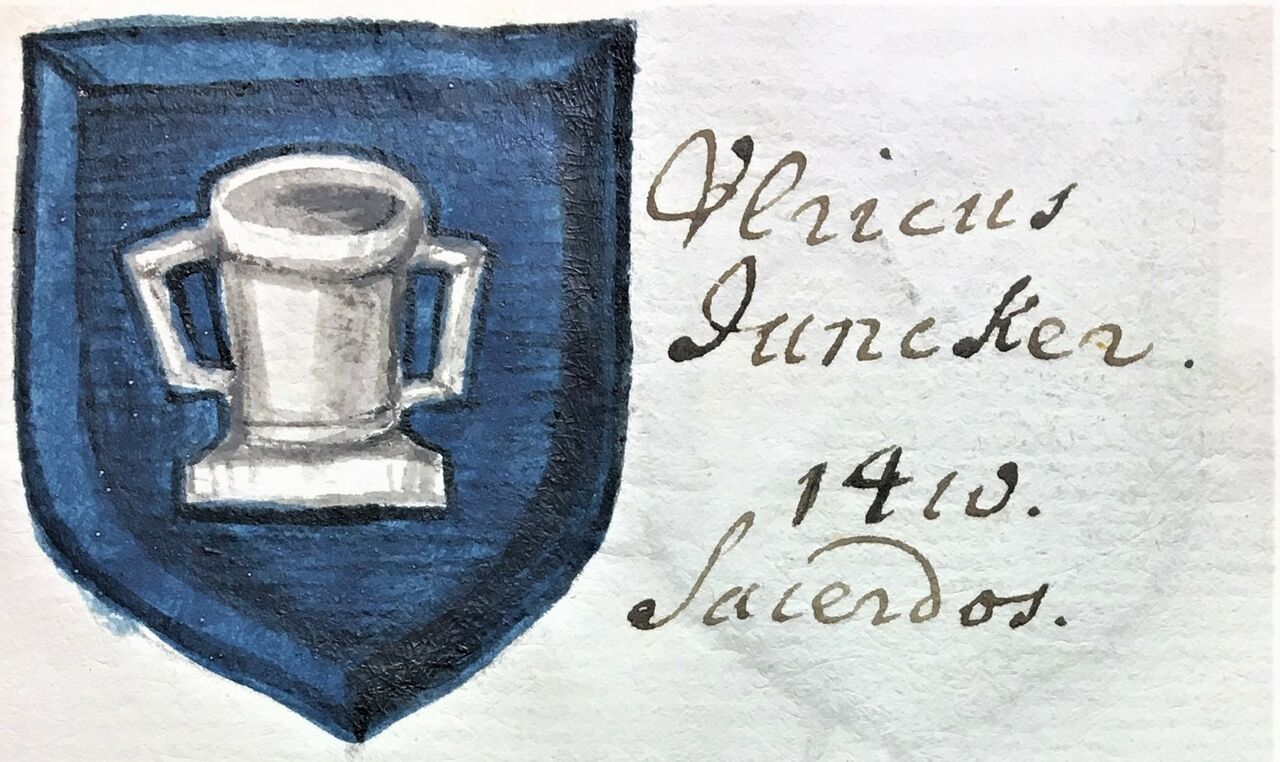 Ulricus
Juncker.
1410.
Sacerdos.